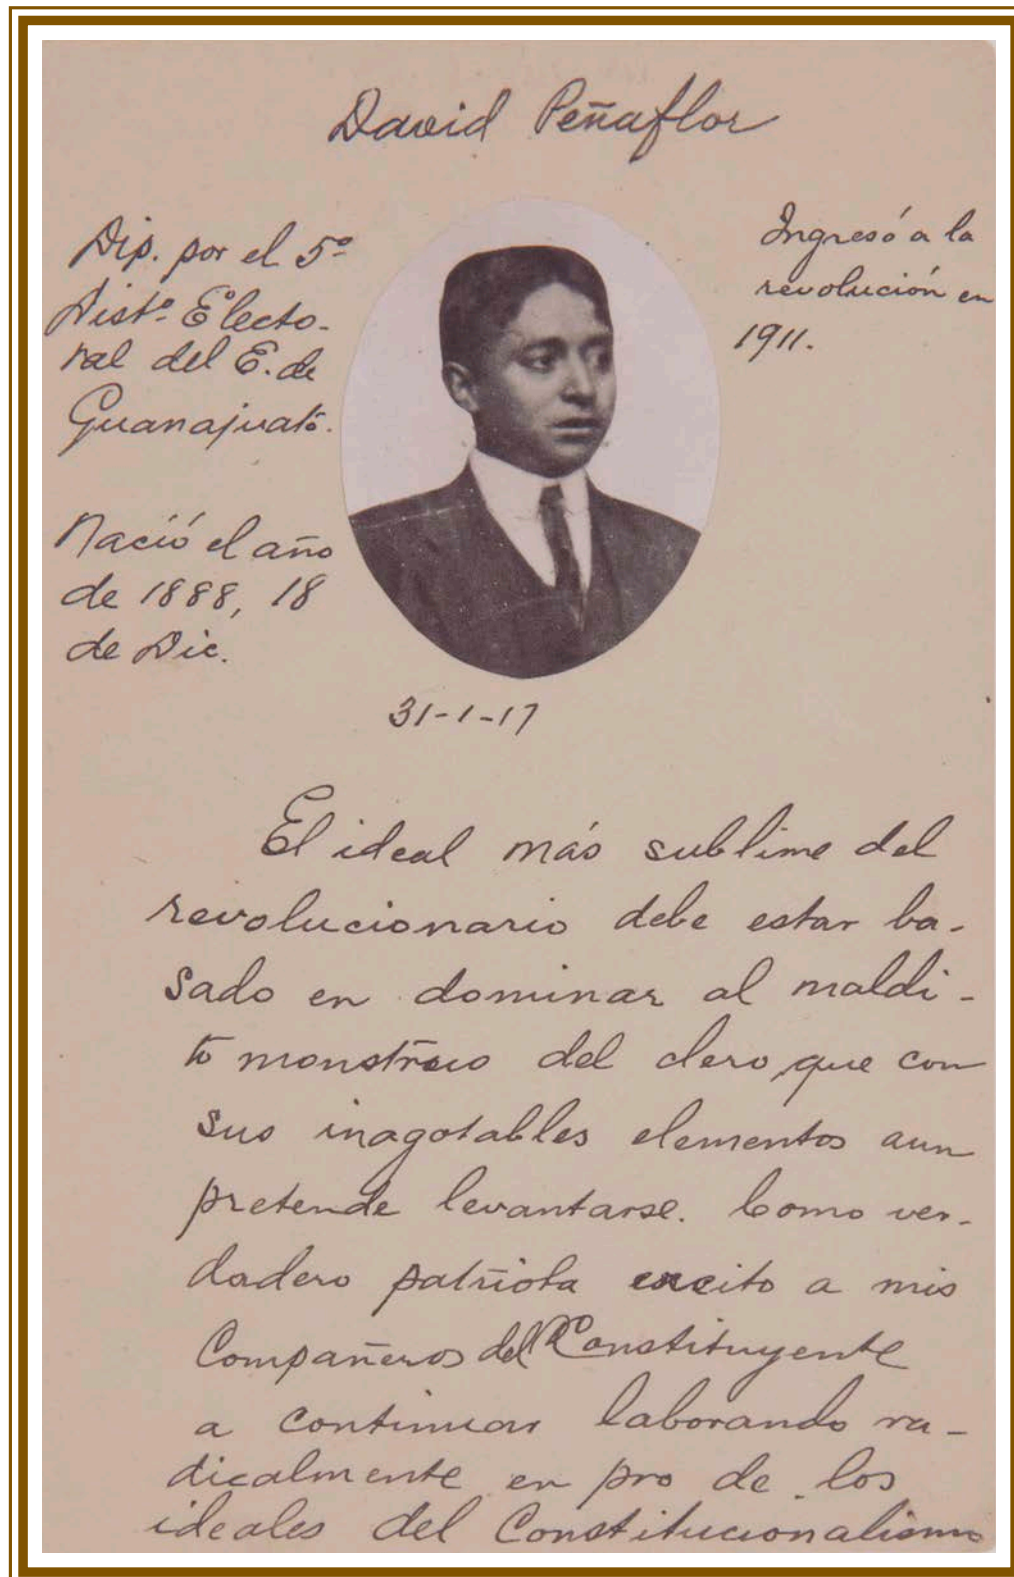 David Peñaflor
Dip. por el 5º
Distº Electo-
ral del E. de
Guanajuato.
Nació el año
de 1888, 18
de Dic.
Ingresó a la
revolución en
1911.
31-1-17
El ideal más sublime del
revolucionario debe estar ba-
sado en dominar al maldi-
to monstruo del clero, que con
sus inagotables elementos aun
pretende levantarse. Como ver-
dadero patriota excito a mis
Compañeros del Constituyente
a continuar laborando ra-
dicalmente en pro de los
ideales del Constitucionalismo